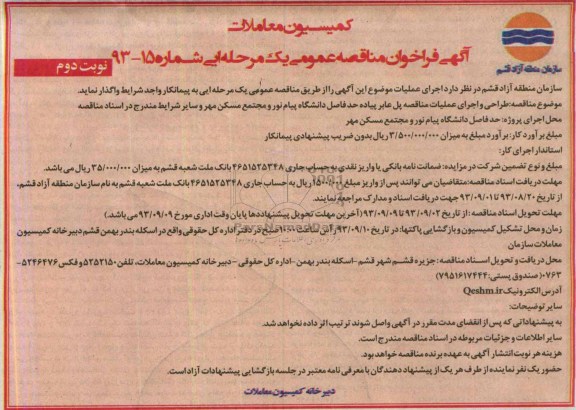 کمیسیون معاملات
آگهی فراخوان مناقصه عمومی یک مرحله ایی شماره ۱۵-۹۳
سازمان منطقه آزاد قشم
نوبت دوم
سازمان منطقه آزاد قشم در نظر دارد اجرای عملیات موضوع این آگهی را از طریق مناقصه عمومی یک مرحله ایی به پیمانکار واجد شرایط واگذار نماید.
موضوع مناقصه: طراحی و اجرای عملیات مناقصه پل عابر پیاده حد فاصل دانشگاه پیام نور و مجتمع مسکن مهر و سایر شرایط مندرج در اسناد مناقصه
محل اجرای پروژه: حد فاصل دانشگاه پیام نور و مجتمع مسکن مهر
مبلغ برآورد کار: برآورد مبلغ به میزان ۳/۵۰۰/۰۰۰/۰۰۰ ریال بدون ضریب پیشنهادی پیمانکار
استاندار اجرای کار:
مبلغ و نوع تضمین شرکت در مزایده: ضمانت نامه بانکی یا واریز نقدی به حساب جاری ۴۶۵۱۵۲۵۳۴۸ بانک ملت شعبه قشم به میزان ۳۵/۰۰۰/۰۰۰ ریال می باشد.
مهلت دریافت اسناد مناقصه: متقاضیان می توانند پس از واریز مبلغ ۱۵۰۰/۰۰۰ ریال به حساب جاری ۴۶۵۱۵۲۵۳۴۸ بانک ملت شعبه قشم به نام سازمان منطقه آزاد قشم،
از تاریخ ۹۳/۰۸/۲۰ تا ۹۳/۰۹/۰۱ جهت دریافت اسناد و مدارک مراجعه نمایند.
مهلت تحویل اسناد مناقصه: از تاریخ ۹۳/۰۹/۰۲ تا ۹۳/۰۹/۰۹ (آخرین مهلت تحویل پیشنهاددها پایان وقت اداری مورخ ۹۳/۰۹/۰۹ می باشد.)
زمان و محل تشکیل کمیسیون و بازگشایی پاکتها: در تاریخ ۹۳/۰۹/۱۰ رأس ساعت ۱۰۰۰ صبح در دفتر اداره کل حقوقی واقع در اسکله بندر بهمن قشم دبیرخانه کمیسیون
معاملات سازمان
محل دریافت و تحویل اسناد مناقصه: جزیره قشم شهر قشم -اسکله بندر بهمن -اداره کل حقوقی - دبیرخانه کمیسیون معاملات، تلفن ۵۲۵۲۱۵۰ و فکس ۵۲۴۶۴۷۶-
۰۷۶۳ (صندوق پستی: ۷۹۵۱۶۱۷۴۴۴)
آدرس الکترونیک Qeshm.ir
سایر توضیحات:
به پیشنهاداتی که پس از انقضای مدت مقرر در آگهی واصل شوند ترتیب اثر داده نخواهد شد.
سایر اطلاعات و جزئیات مربوطه در اسناد مناقصه مندرج است.
هزینه هر نوبت انتشار آگهی به عهده برنده مناقصه خواهد بود.
حضور یک نفر نماینده از طرف هر یک از پیشنهاد دهندگان با معرفی نامه معتبر در جلسه بازگشایی پیشنهادات آزاد است.
دبیرخانه کمیسیون معاملات